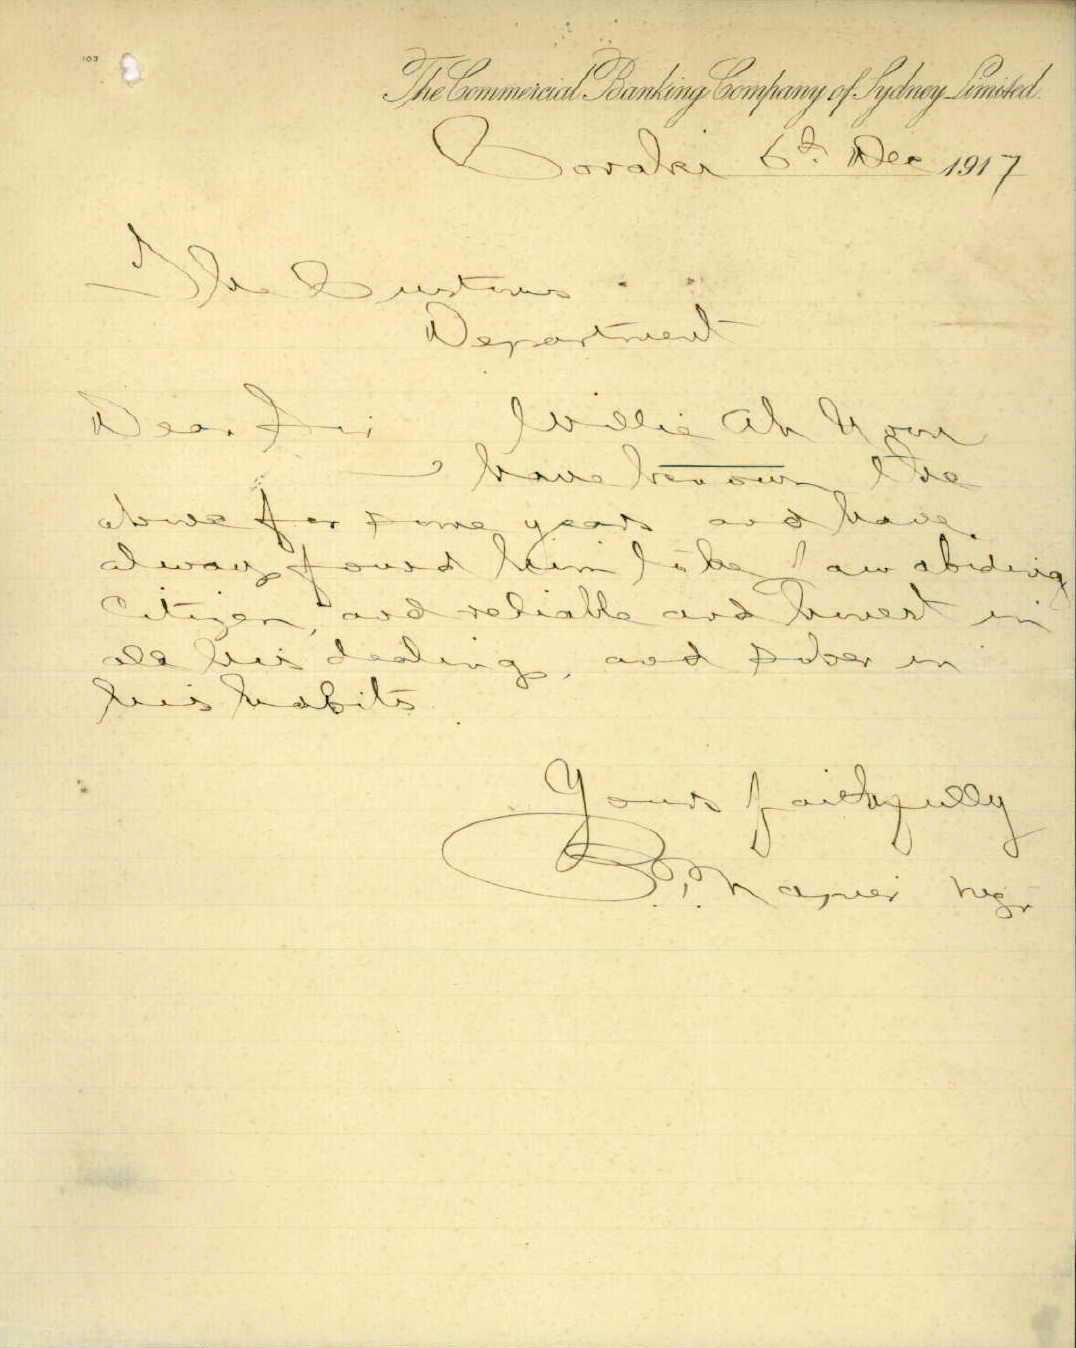 103
The Commercial Banking Company of Sydney Limited.
6th Dec 1917
The Customs
Department
Dear Sir Willie Ah
have known the
above for some years and have
always found him to be law abiding
Citizen, and reliable and honest in
all his dealing, and sober in
his habits.
Yours faithfully
Napier Mgr